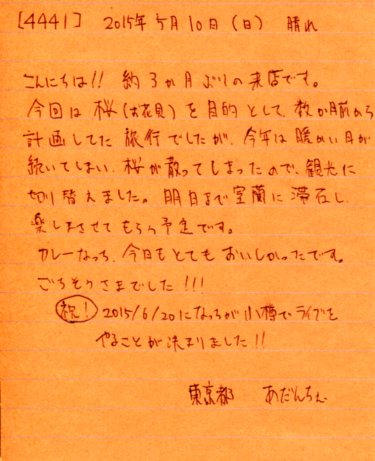 [4441] 2015年5月10日(日) 晴れ
こんにちは!! 約3か月ぶりの来店です。
今回は桜(お花見)を目的として、数か月前から
計画してた旅行でしたが、今年は暖かい日が
続いてしまい、桜が散ってしまったので、観光に
切り替えました。明日まで室蘭に滞在し、
楽しまさせてもらう予定です。
カレーなっち、今日もとてもおいしかったです。
ごちそうさまでした!!!
祝! 2015/6/20になっちが小樽でライブを
やることが決まりました!!
東京都 あだんちぇ